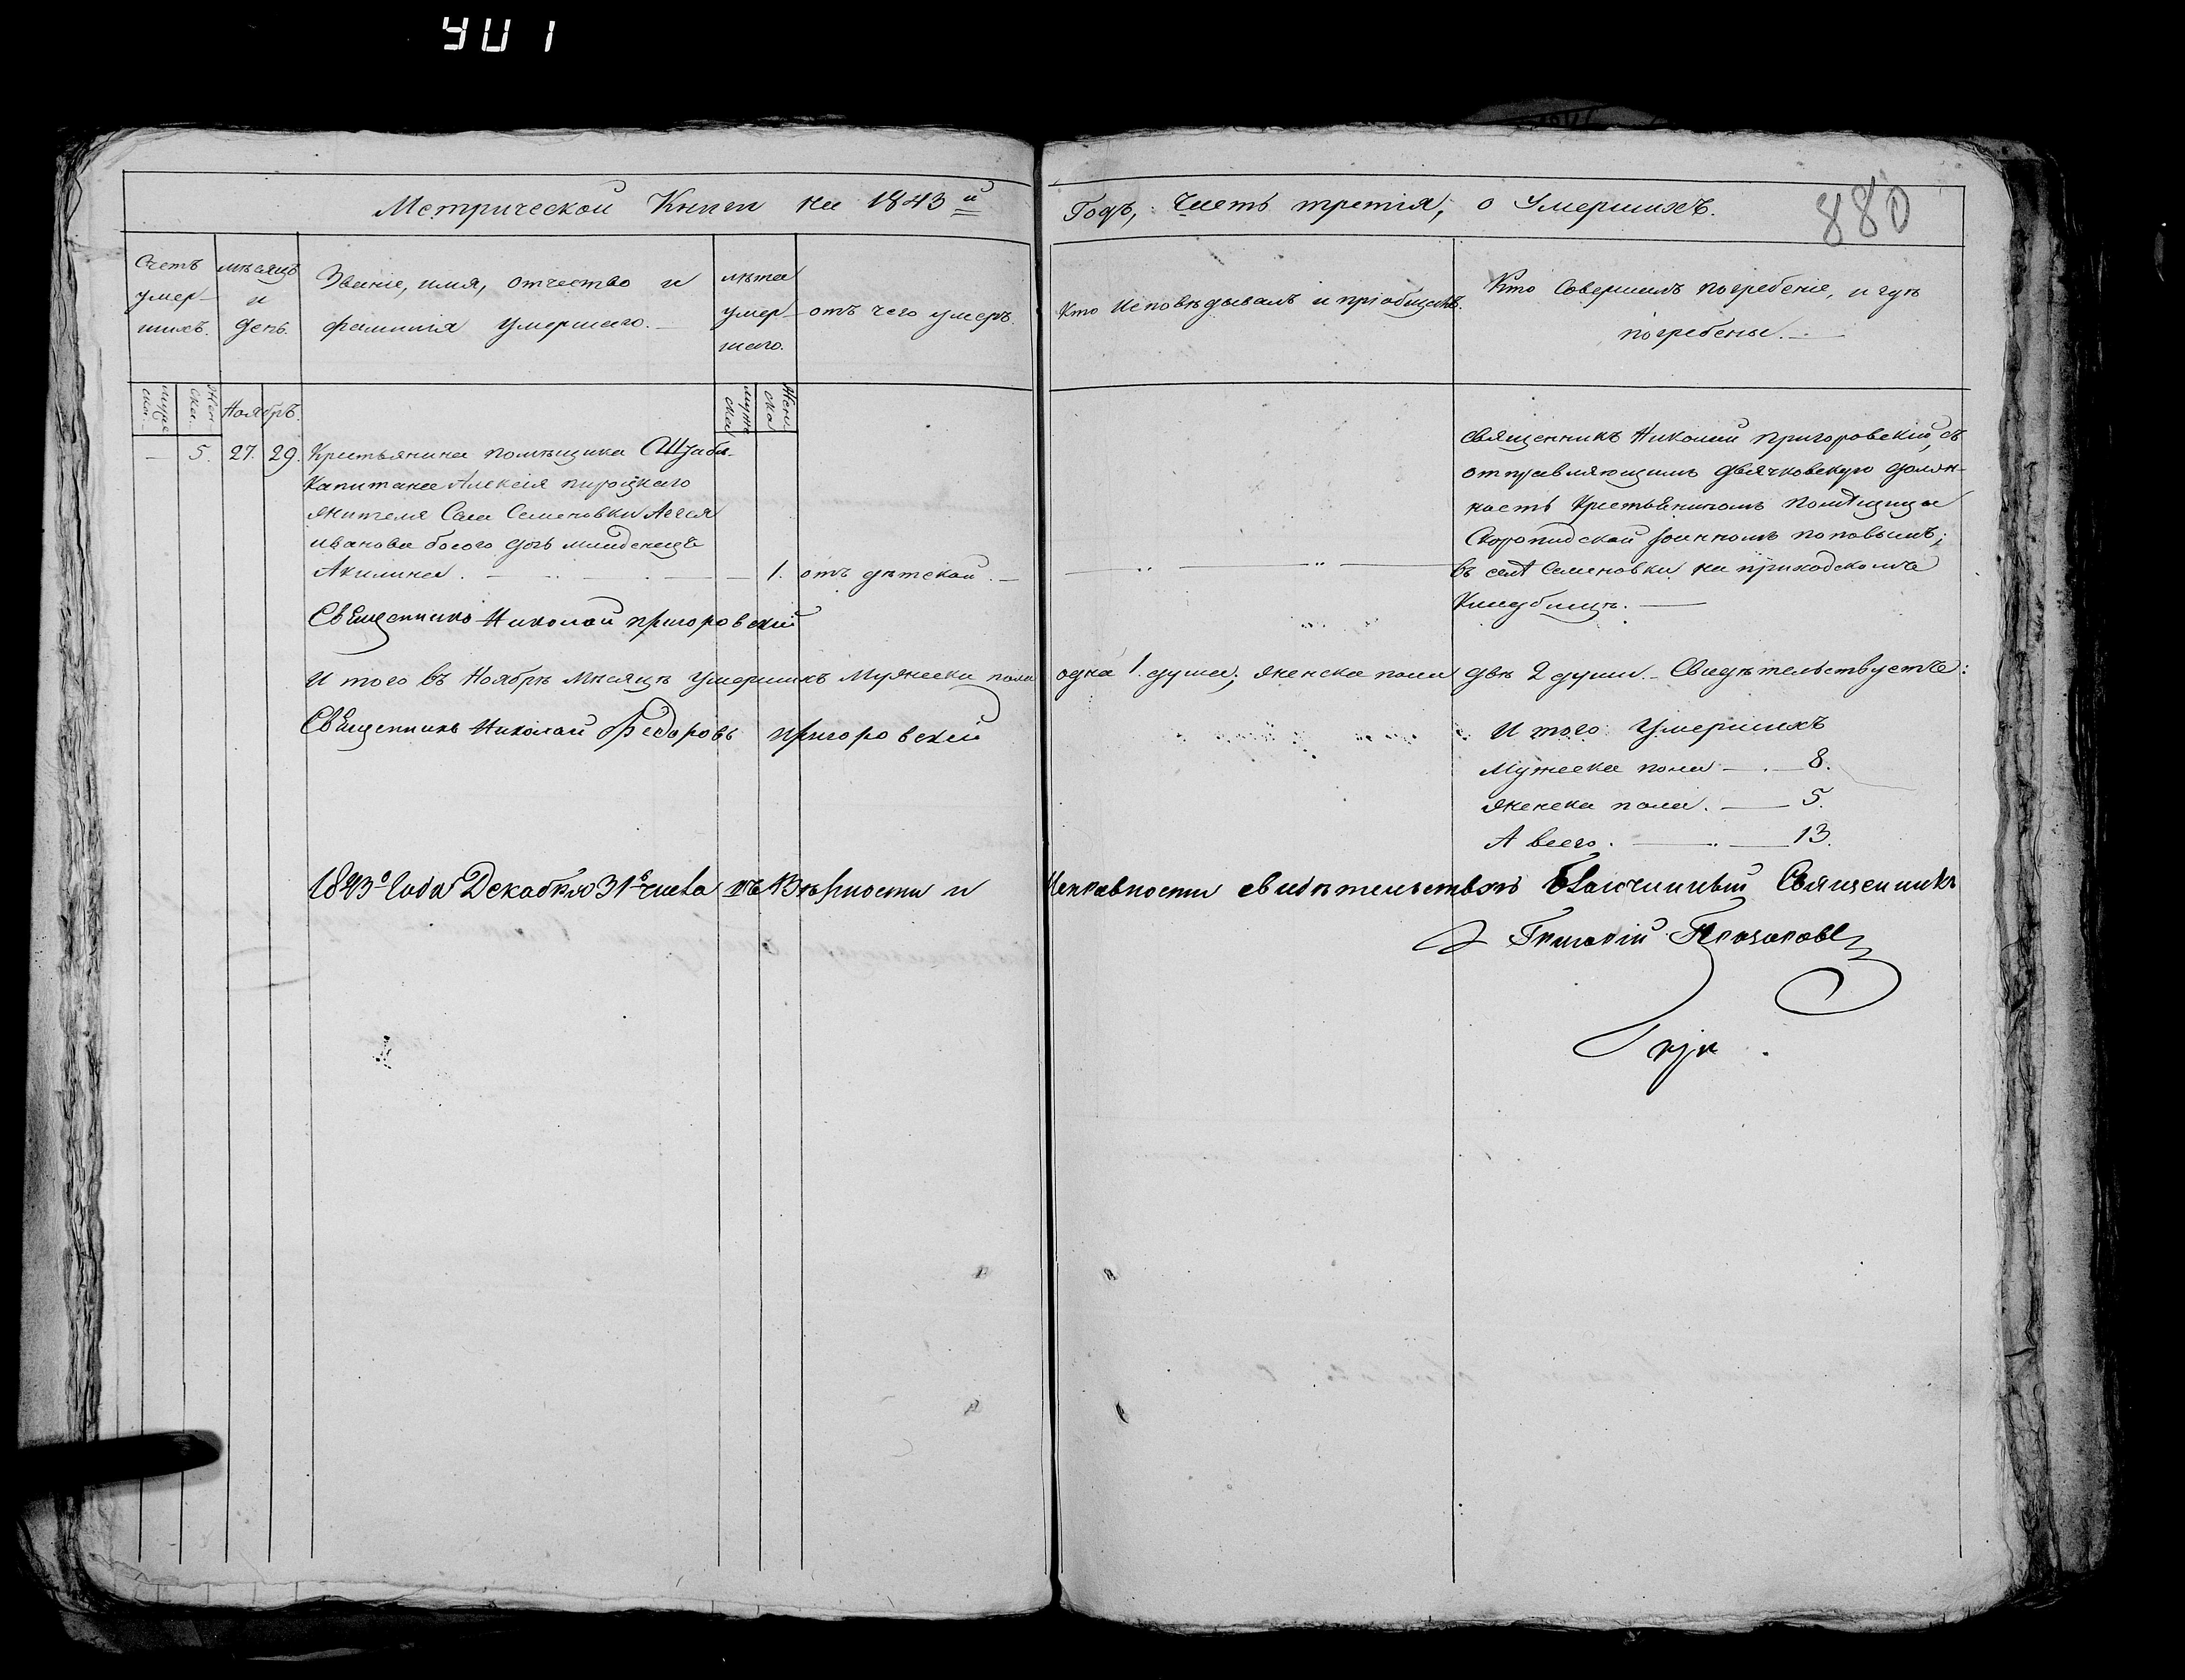 901
Метрической Книги на 1843й Годъ, Часть третія, о Умершихъ.
880
Счетъ умер-шихъ.
мѣсяцъ и день.
Званіе, имя, отчество и фамилія умершаго.
лѣта умер-шаго.
отъ чего умеръ.
Кто исповѣдывалъ и пріобщалъ.
Кто Совершилъ погребеніе, и гдѣ погребены.
муже ска.
Жен ска.
Ноябрь.
муже ска
Жен ска
— 5. 27. 29. Крестьянина помѣщика Штабс-
Капитана Алексія пироцкаго
жителя Села Семеновки
иванова дочь младенецъ
Акилина. — 1. отъ дѣтской. —
Священникъ Николай пригоровскій, съ
отправляющимъ дьячковскую долж-
ность Крестьяниномъ Помѣщицы
Скоропадской поповымъ;
въ селѣ Семеновки на приходскомъ
Кладбищѣ. —
Священникъ Николай пригоровскій
И того въ Ноябрѣ Мѣсяцѣ умершихъ Мужеска пола одна 1. душа; женска пола двѣ 2 души. — Свидѣтельствуетъ:
Священникъ Николай Федоровъ пригоровскій
И того Умершихъ
Мужеска пола — 8.
женска пола. — 5.
А всего. — 13.
1843о Года Декабря 31о числа въ Вѣрности и Исправности свидѣтельствовалъ Благочинный Священникъ
Григорій